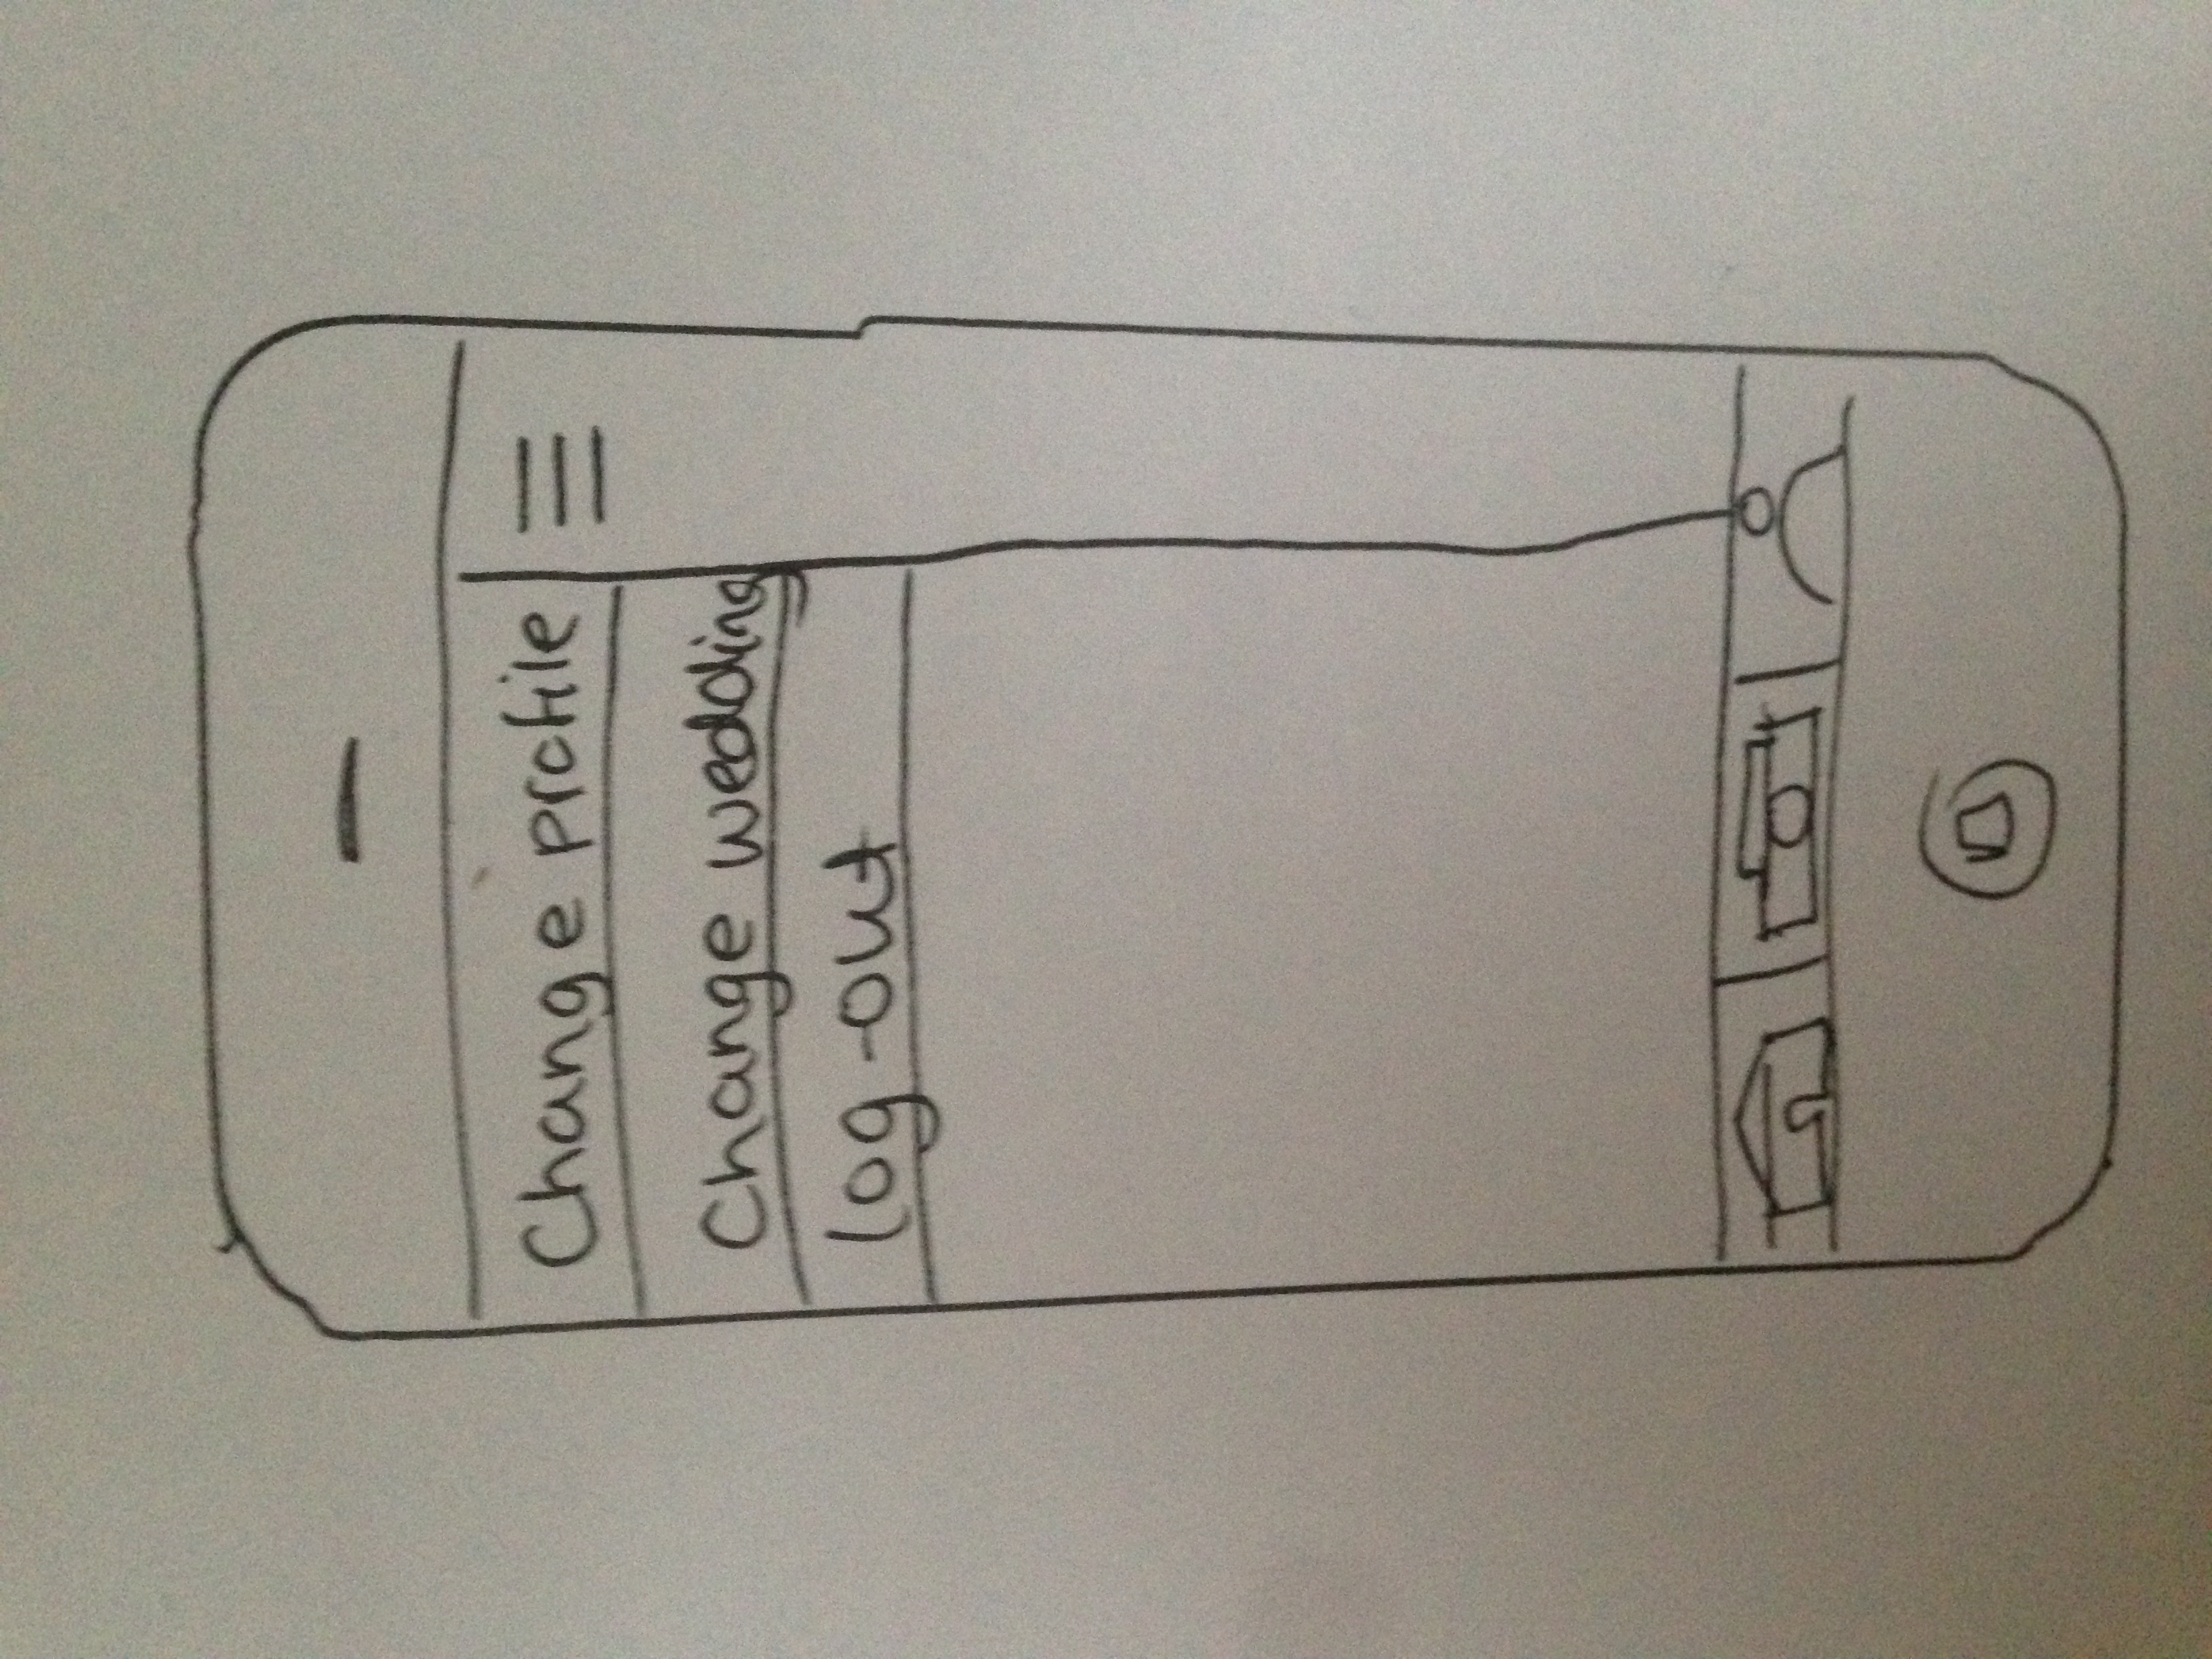 Change profile
Change wedding
log-out